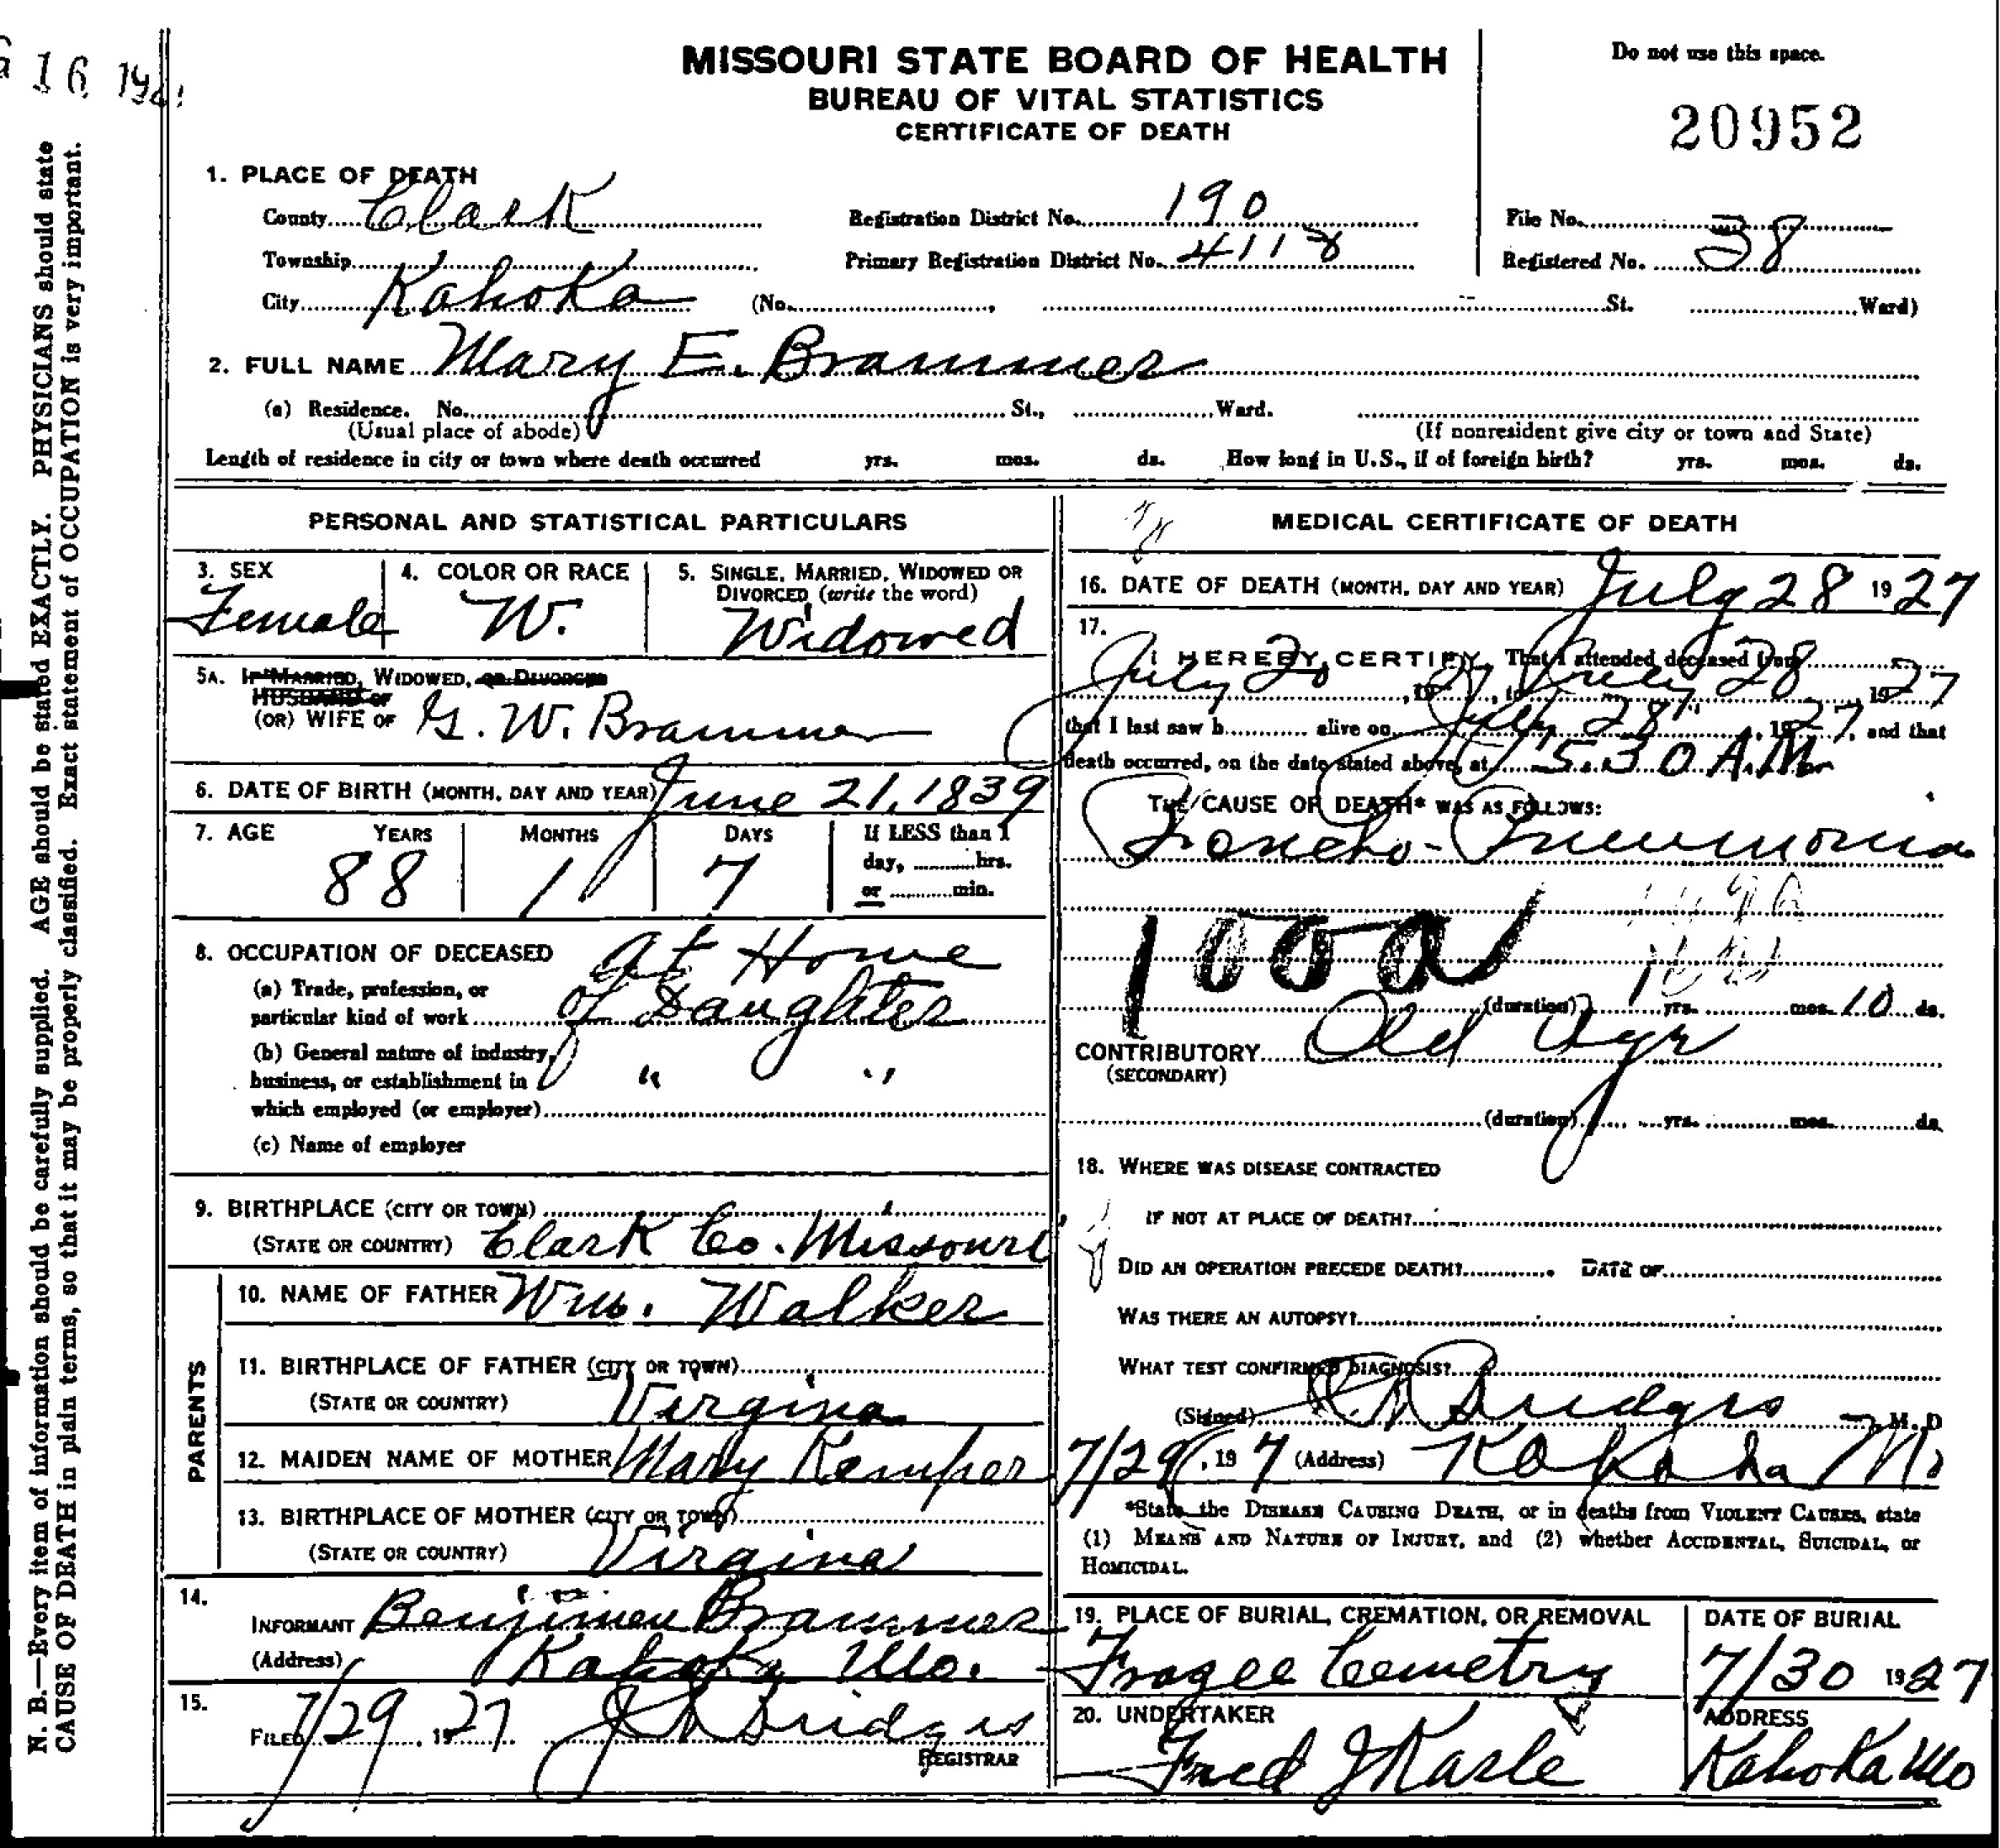 16 19
MISSOURI STATE BOARD OF HEALTH
BUREAU OF VITAL STATISTICS
CERTIFICATE OF DEATH
Do not use this space.
20952
1. PLACE OF DEATH
County Clark Registration District No. 190 File No.
Township Primary Registration District No. 4118 Registered No. 38
City Kahoka (No. , St. Ward)
2. FULL NAME Mary E. Brammer
(a) Residence. No. St., Ward.
(Usual place of abode) (If nonresident give city or town and State)
Length of residence in city or town where death occurred yrs. mos. ds. How long in U.S., if of foreign birth? yrs. mos. ds.
PERSONAL AND STATISTICAL PARTICULARS
3. SEX 4. COLOR OR RACE 5. SINGLE, MARRIED, WIDOWED OR
DIVORCED (write the word)
Female W. Widowed
5A. IF MARRIED, WIDOWED, OR DIVORCED
HUSBAND OF
(OR) WIFE OF G. W. Brammer
6. DATE OF BIRTH (MONTH, DAY AND YEAR) June 21, 1839
7. AGE YEARS MONTHS DAYS If LESS than 1
day, hrs.
88 1 7 or min.
8. OCCUPATION OF DECEASED at Home
(a) Trade, profession, or
particular kind of work of Daughter
(b) General nature of industry,
business, or establishment in " "
which employed (or employer)
(c) Name of employer
9. BIRTHPLACE (CITY OR TOWN)
(STATE OR COUNTRY) Clark Co. Missouri
PARENTS
10. NAME OF FATHER Wm. Walker
11. BIRTHPLACE OF FATHER (CITY OR TOWN)
(STATE OR COUNTRY) Virgina
12. MAIDEN NAME OF MOTHER Mary Kemper
13. BIRTHPLACE OF MOTHER (CITY OR TOWN)
(STATE OR COUNTRY) Virgina
14.
INFORMANT Benjimen Brammer
(Address) Kahoka Mo.
15.
FILED 7/29, 1927 Bridges
REGISTRAR
MEDICAL CERTIFICATE OF DEATH
16. DATE OF DEATH (MONTH, DAY AND YEAR) July 28 1927
17.
I HEREBY CERTIFY, That I attended deceased from
July 20, 1927, to July 28, 1927
that I last saw h alive on July 28, 1927, and that
death occurred, on the date stated above, at 5:30 A.M.
THE CAUSE OF DEATH* WAS AS FOLLOWS:
Broncho-Pneumonia
100a
(duration) yrs. mos. 10 ds.
CONTRIBUTORY Old Age
(SECONDARY)
(duration) yrs. mos. ds.
18. WHERE WAS DISEASE CONTRACTED
IF NOT AT PLACE OF DEATH?
DID AN OPERATION PRECEDE DEATH? DATE OF
WAS THERE AN AUTOPSY?
WHAT TEST CONFIRMED DIAGNOSIS?
(Signed) Bridges M. D
7/29, 19 7 (Address) Kahoka Mo
*State the DISEASE CAUSING DEATH, or in deaths from VIOLENT CAUSES, state
(1) MEANS AND NATURE OF INJURY, and (2) whether ACCIDENTAL, SUICIDAL, or
HOMICIDAL.
19. PLACE OF BURIAL, CREMATION, OR REMOVAL DATE OF BURIAL
Fragee Cemetry 7/30 1927
20. UNDERTAKER ADDRESS
Fred J Karle Kahoka Mo
N. B.—Every item of information should be carefully supplied. AGE should be stated EXACTLY. PHYSICIANS should state
CAUSE OF DEATH in plain terms, so that it may be properly classified. Exact statement of OCCUPATION is very important.